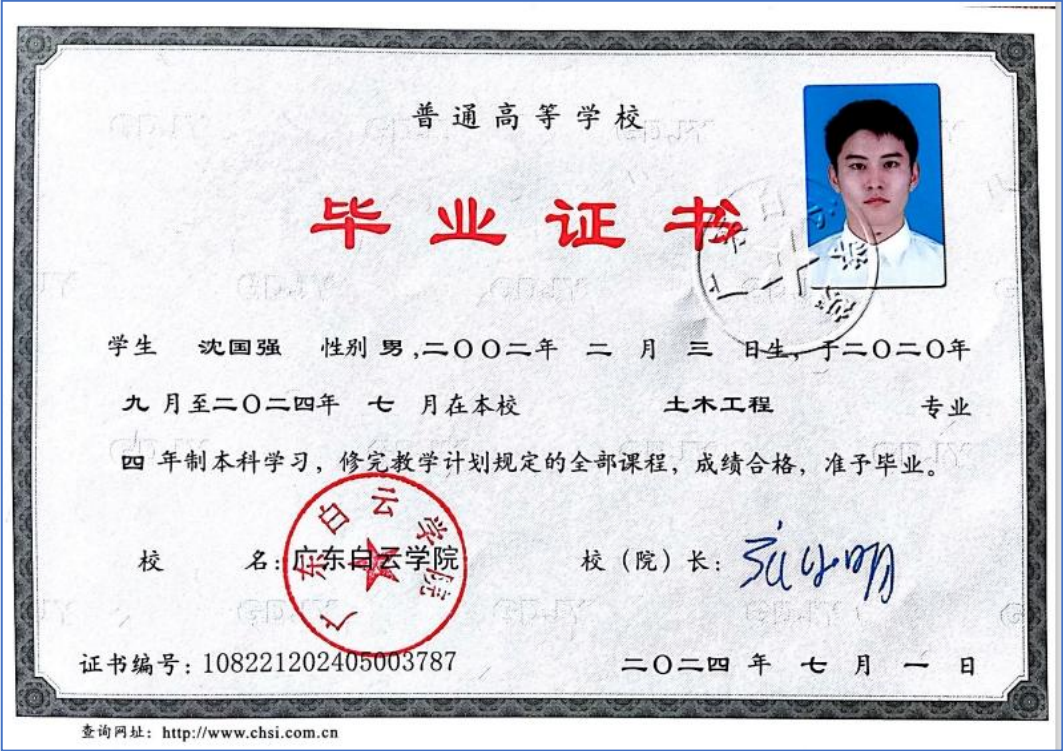 普通高等学校
毕业证书
学生 沈国强 性别 男,二〇〇二年 二 月 三 日生，于二〇二〇年
九 月至二〇二四年 七 月在本校 土木工程 专业
四 年制本科学习，修完教学计划规定的全部课程，成绩合格，准予毕业。
广东白云学院
校 名：广东白云学院 校（院）长：
证书编号：108221202405003787 二〇二四 年 七 月 一 日
查询网址：http://www.chsi.com.cn